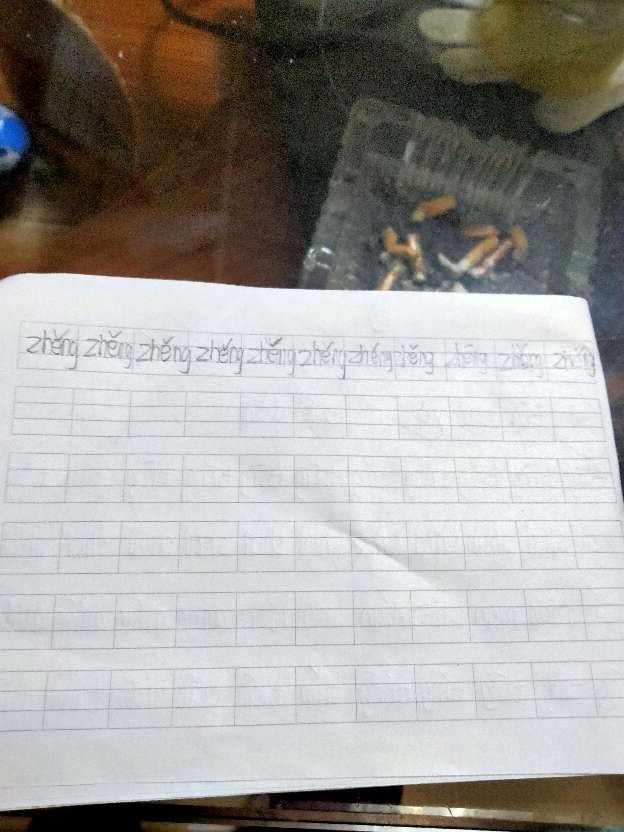 zhěng zhěng zhěng zhěng zhěng zhěng zhěng zhěng zhěng zhěng zhěng